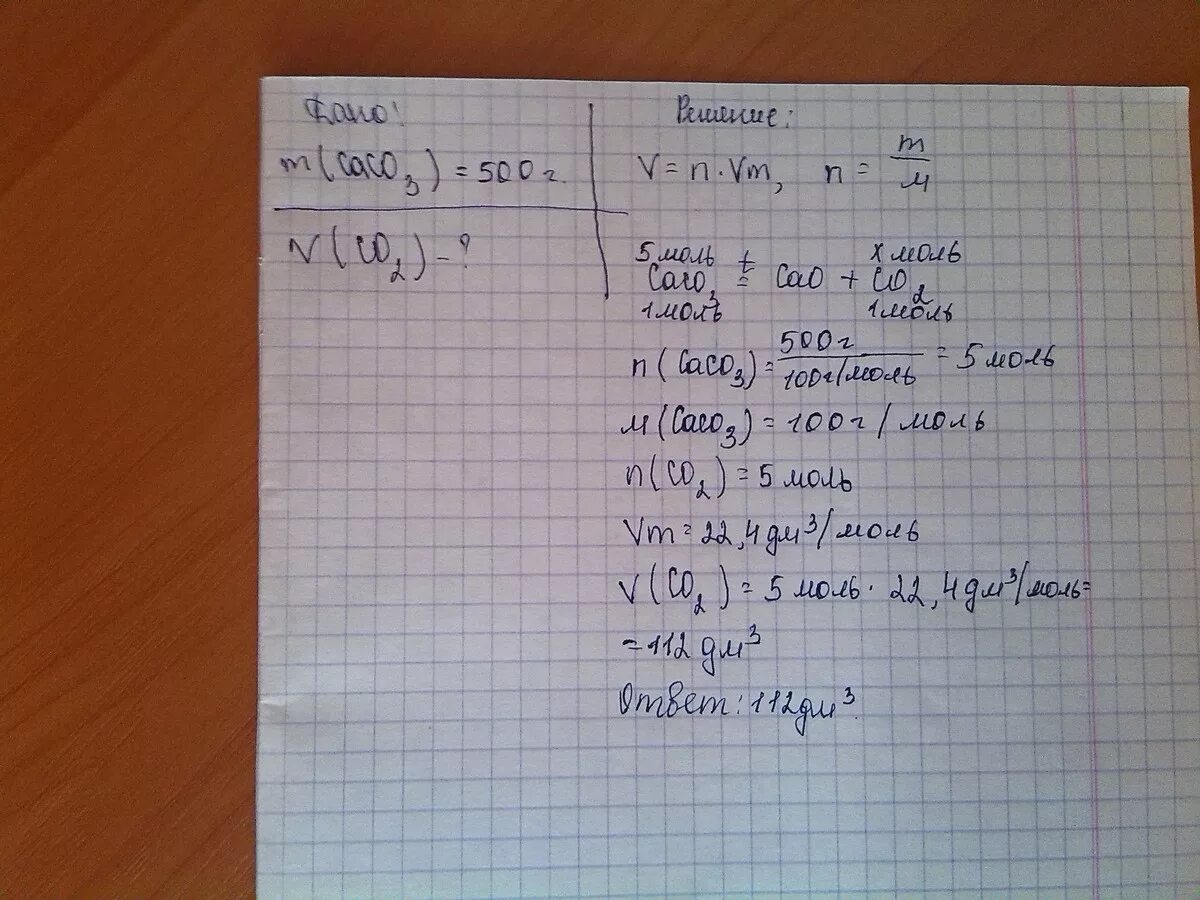 Дано:
m(CaCO₃) = 500 г.
V(CO₂) - ?
Решение:
V = n · Vm, n = m/M
5 моль t x моль
CaCO₃ = CaO + CO₂
1 моль 1 моль
n(CaCO₃) = 500 г / 100 г/моль = 5 моль
M(CaCO₃) = 100 г/моль
n(CO₂) = 5 моль
Vm = 22,4 дм³/моль
V(CO₂) = 5 моль · 22,4 дм³/моль =
= 112 дм³
Ответ: 112 дм³.